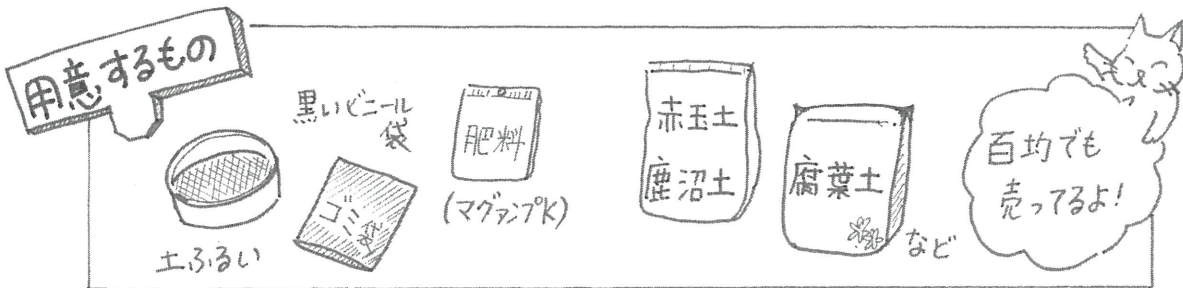 用意するもの
土ふるい
黒いビニール
袋
ゴミ袋
肥料
(マグァンプK)
赤玉土
鹿沼土
腐葉土
など
百均でも
売ってるよ!